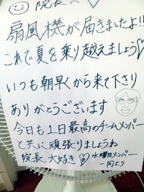 院長へ
扇風機が届きましたよ!!
これで夏を乗り越えましょう♡
いつも朝早くから来て下さり
ありがとうございます
今日も1日最高のチームメンバー
と共に頑張りましょうね
院長大好き♡
水曜日メンバー
一同より